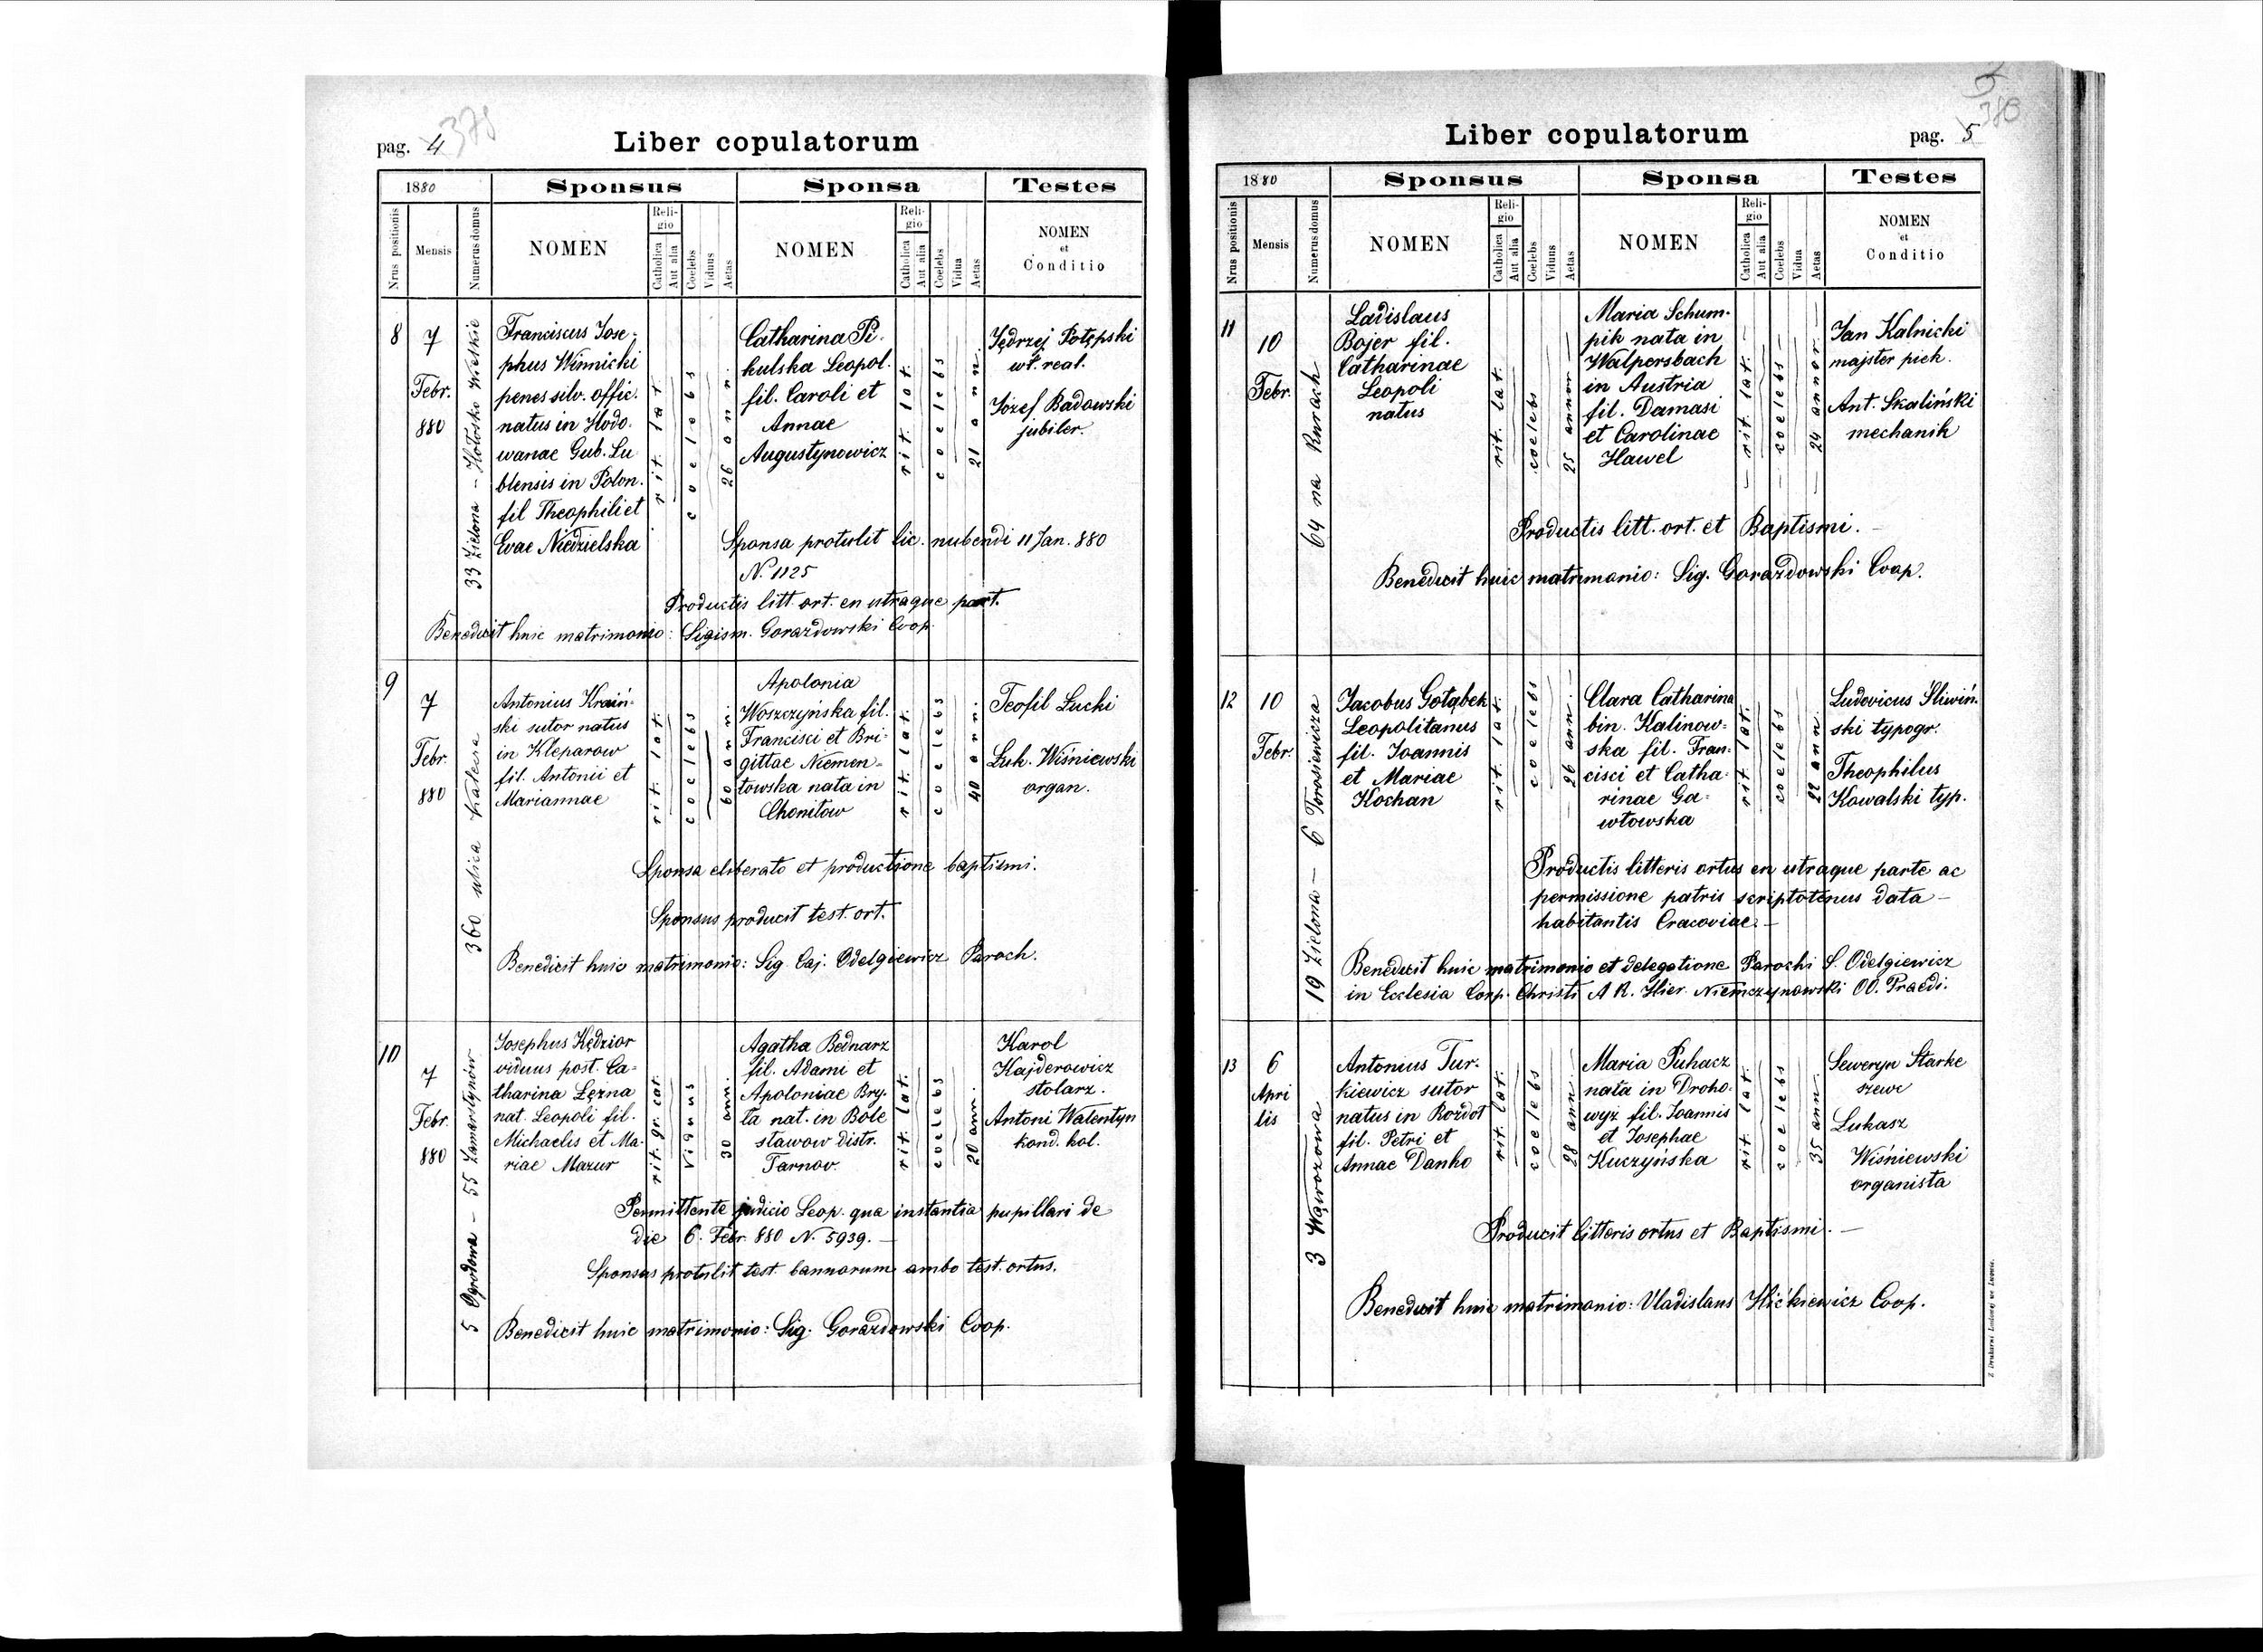 pag. 4 378
Liber copulatorum
1880
Sponsus
Sponsa
Testes
Nrus positionis
Mensis
Numerus domus
NOMEN
Religio
Catholica
Aut alia
Coelebs
Viduus
Aetas
NOMEN
Religio
Catholica
Aut alia
Coelebs
Vidua
Aetas
NOMEN
et
Conditio
8
7
Febr.
880
33 Zielona – Hołosko Wielkie
Franciscus Jose-
phus Winnicki
penes silv. offic.
natus in Hodo.
wanae Gub. Lu
blensis in Polon.
fil Theophili et
Evae Niedzielska
rit. lat
coelebs
26 ann.
Catharina Pi.
kulska Leopol.
fil. Caroli et
Annae
Augustynowicz
rit. lat.
coelebs
21 ann.
Jędrzej Potępski
wł. real.
Józef Badowski
jubiler.
Sponsa protulit lic. nubendi 11 Jan. 880
N. 1125
Productis litt. ort. en utraque part.
Benedicit huic matrimonio: Sigism. Gorazdowski Coop.
9
7
Febr.
880
360 ulica Kalecza
Antonius Kraiń-
ski sutor natus
in Kleparow
fil. Antonii et
Mariannae
rit. lat.
coelebs
60 ann.
Apolonia
Woszczyńska fil.
Francisci et Bri-
gittae Niemen=
towska nata in
Chonitow
rit. lat.
coelebs
40 ann.
Teofil Lucki
Luk. Wiśniewski
organ.
Sponsa eliberato et productione baptismi.
Sponsus producit test. ort.
Benedicit huic matrimonio: Sig. Caj. Odelgiewicz Paroch.
10
7
Febr.
880
5 Ogrodowa – 55 Zamarstynów
Josephus Kędzior
viduus post. Ca-
tharina Lężna
nat. Leopoli fil.
Michaelis et Ma-
riae Mazur
rit. gr. cat.
30 ann.
Agatha Bednarz
fil. Adami et
Apoloniae Bry.
ta nat. in Bole
sławow distr.
Tarnov.
rit. lat.
coelebs
20 ann.
Karol
Kajderowicz
stolarz.
Antoni Walentyn
kond. kol.
Permittente judicio Leop. qua instantia pupillari de
die 6. Febr. 880 N. 5939. –
Sponsus protulit test. bannorum ambo test. ortus.
Benedicit huic matrimonio: Sig. Gorazdowski Coop.
5
380
Liber copulatorum
pag. 5
1880
Sponsus
Sponsa
Testes
Nrus positionis
Mensis
Numerus domus
NOMEN
Religio
Catholica
Aut alia
Coelebs
Viduus
Aetas
NOMEN
Religio
Catholica
Aut alia
Coelebs
Vidua
Aetas
NOMEN
et
Conditio
11
10
Febr.
64 na Rurach
Ladislaus
Bojer fil.
Catharinae
Leopoli
natus
rit. lat.
coelebs
25 annor –
Maria Schum.
pik nata in
Walpersbach
in Austria
fil. Damasi
et Carolinae
Hawel
– rit. lat. –
– coelebs –
– 24 annor –
Jan Kalnicki
majster piek.
Ant. Skaliński
mechanik
Productis litt. ort. et Baptismi. –
Benedicit huic matrimonio: Sig. Gorazdowski Coop.
12
10
Febr.
19 Zielona – 6 Torosiewicza
Jacobus Gołąbek
Leopolitanus
fil. Joannis
et Mariae
Kochan
rit. lat.
coelebs
– 26 ann. –
Clara Catharina
bin. Kalinow=
ska fil. Fran-
cisci et Catha-
rinae Ga=
włowska
rit. lat.
coelebs
22 ann.
Ludovicus Śliwiń.
ski typogr.
Theophilus
Kowalski typ.
Productis litteris ortus en utraque parte ac
permissione patris scriptotenus data –
habitantis Cracoviae. –
Benedicit huic matrimonio et delegatione Parochi S. Odelgiewicz
in Ecclesia Corp. Christi A R. Hier. Niemczynowski OO. Praedi.
13
6
Apri
lis
3 Wąwozowa
Antonius Tur-
kiewicz sutor
natus in Rozdoł
fil. Petri et
Annae Danko
rit. lat.
coelebs
28 ann.
Maria Puhacz
nata in Droho.
wyż fil. Joannis
et Josephae
Kuczyńska
rit. lat.
coelebs
35 ann.
Seweryn Starke
szewc
Lukasz
Wiśniewski
organista
Producit litteris ortus et Baptismi. –
Benedicit huic matrimonio: Vladislaus Hićkiewicz Coop.
Z Drukarni Ludowej we Lwowie.